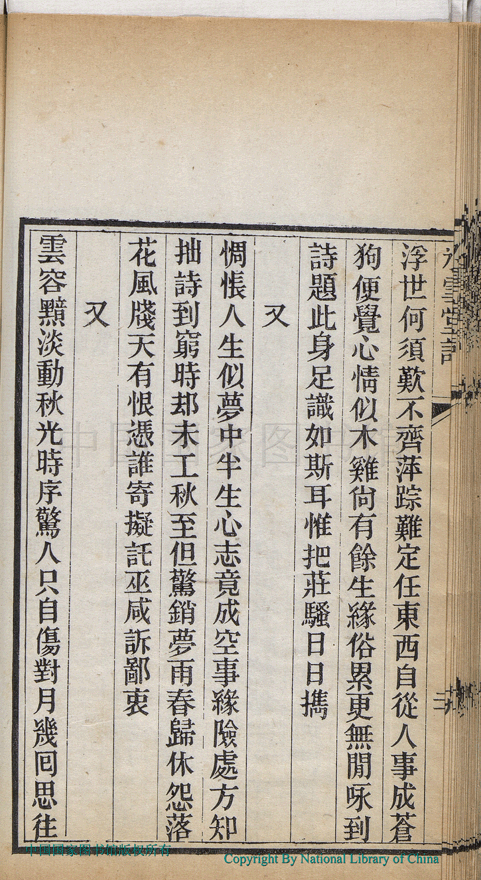 浮世何須歎不齊萍踪難定任東西自從人事成蒼
狗便覺心情似木雞尙有餘生緣俗累更無閒咏到
詩題此身足識如斯耳惟把莊騷日日攜
又
惆悵人生似夢中半生心志竟成空事緣險處方知
拙詩到窮時却未工秋至但驚銷夢雨春歸休怨落
花風牋天有恨憑誰寄擬託巫咸訴鄙衷
又
雲容黯淡動秋光時序驚人只自傷對月幾囘思往
中国国家图书馆版权所有
Copyright By National Library of China
中国国家图书馆